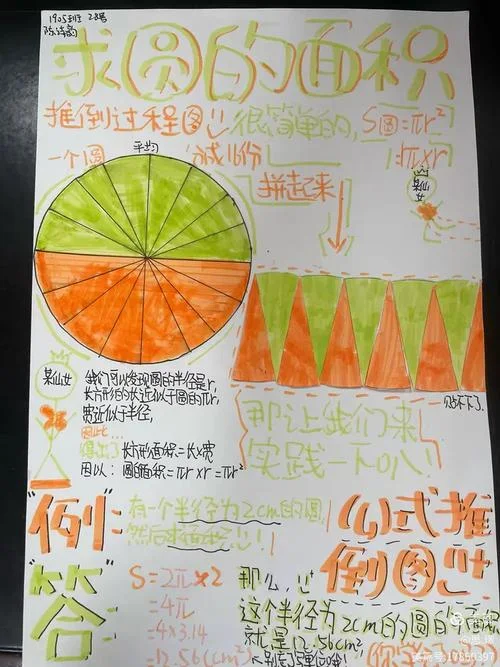 1905班 28号
求圆的面积
推倒过程图!!
很简单的,
S圆=πr²
=πr×r
一个圆
平均
分成16份
拼起来
某仙女
贴不下了.
某仙女
我们可以发现圆的半径是r,
长方形的长近似于圆的πr,
宽近似于半径,
因此...
得出了长方形面积=长×宽
因以: 圆的面积=πr×r=πr²
那让我们来
实践一下吧!
"例":
有一个半径为2cm的圆,
然后求面积!!!
公式推
倒图
答
S=2π×2
=4π
=4×3.14
=12.56(cm²)
那么,
这个半径为2cm的圆的面积
就是12.56cm²
你